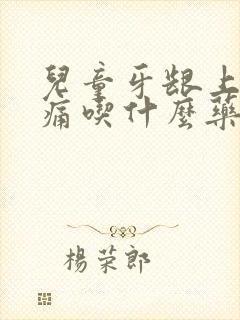 兒童牙齦上
痛喫什麼藥
楊荣郎